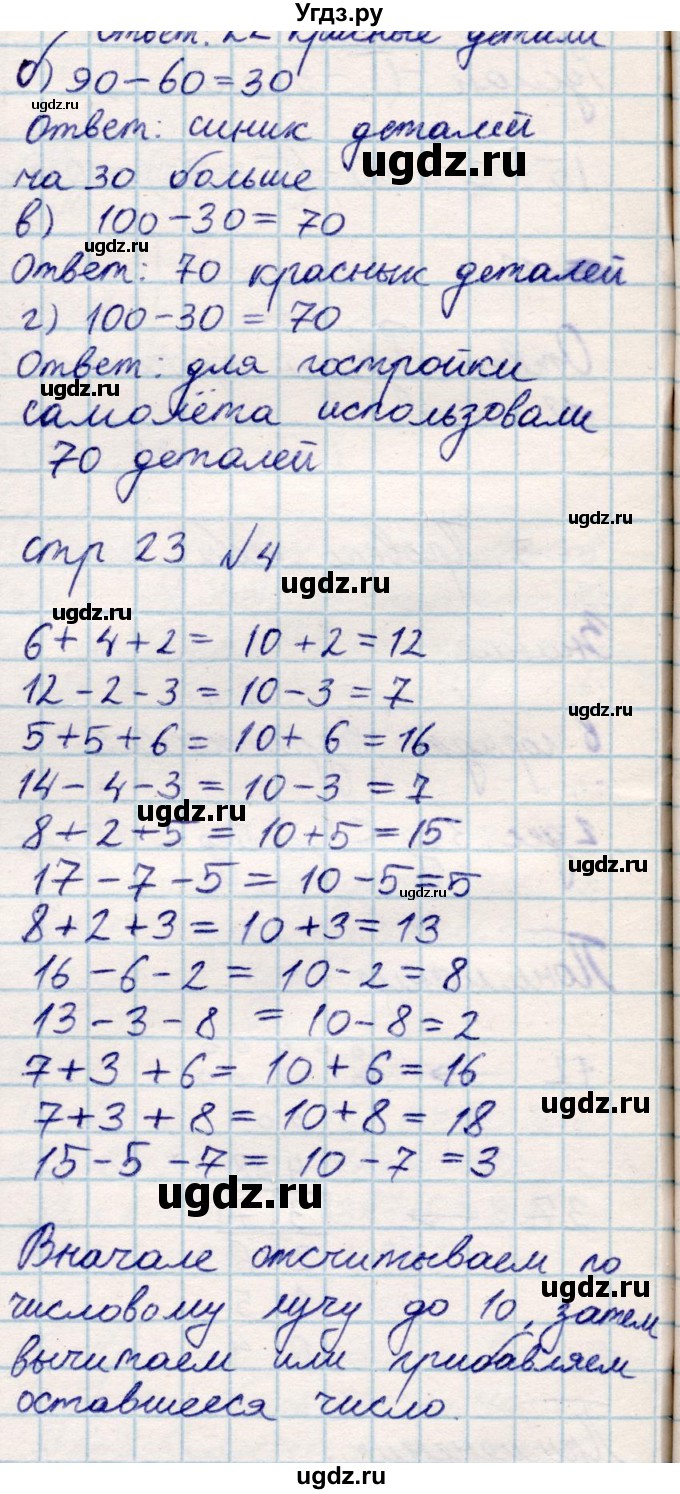 Угдз.ру
Ответ: 22 красные детали
б) 90-60=30
ugdz.ru
Ответ: синих деталей
ugdz.ru
на 30 больше
в) 100-30= 70
ugdz.ru
Ответ: 70 красных деталей
г) 100-30 = 70
Ответ: для постройки
ugdz.ru
самолёта использовали
70 деталей
ugdz.ru
стр 23 №4
ugdz.ru
ugdz.ru
6+4+2= 10+2=12
12-2-3=10-3=7
ugdz.ru
5+5+6= 10+ 6=16
14-4-3=10-3=7
ugdz.ru
8+2+5= 10+5=15
ugdz.ru
17-7-5= 10-5=5
ugdz.ru
8+2+3= 10+3=13
16-6-2= 10-2=8
13-3-8 = 10-8=2
7+3+6= 10+6=16
ugdz.ru
7+3+8= 10+8= 18
15-5-7= 10-7=3
ugdz.ru
Вначале отсчитываем по
ugdz.ru
числовому лучу до 10, затем
вычитаем или прибавляем
оставшееся число.
ugdz.ru